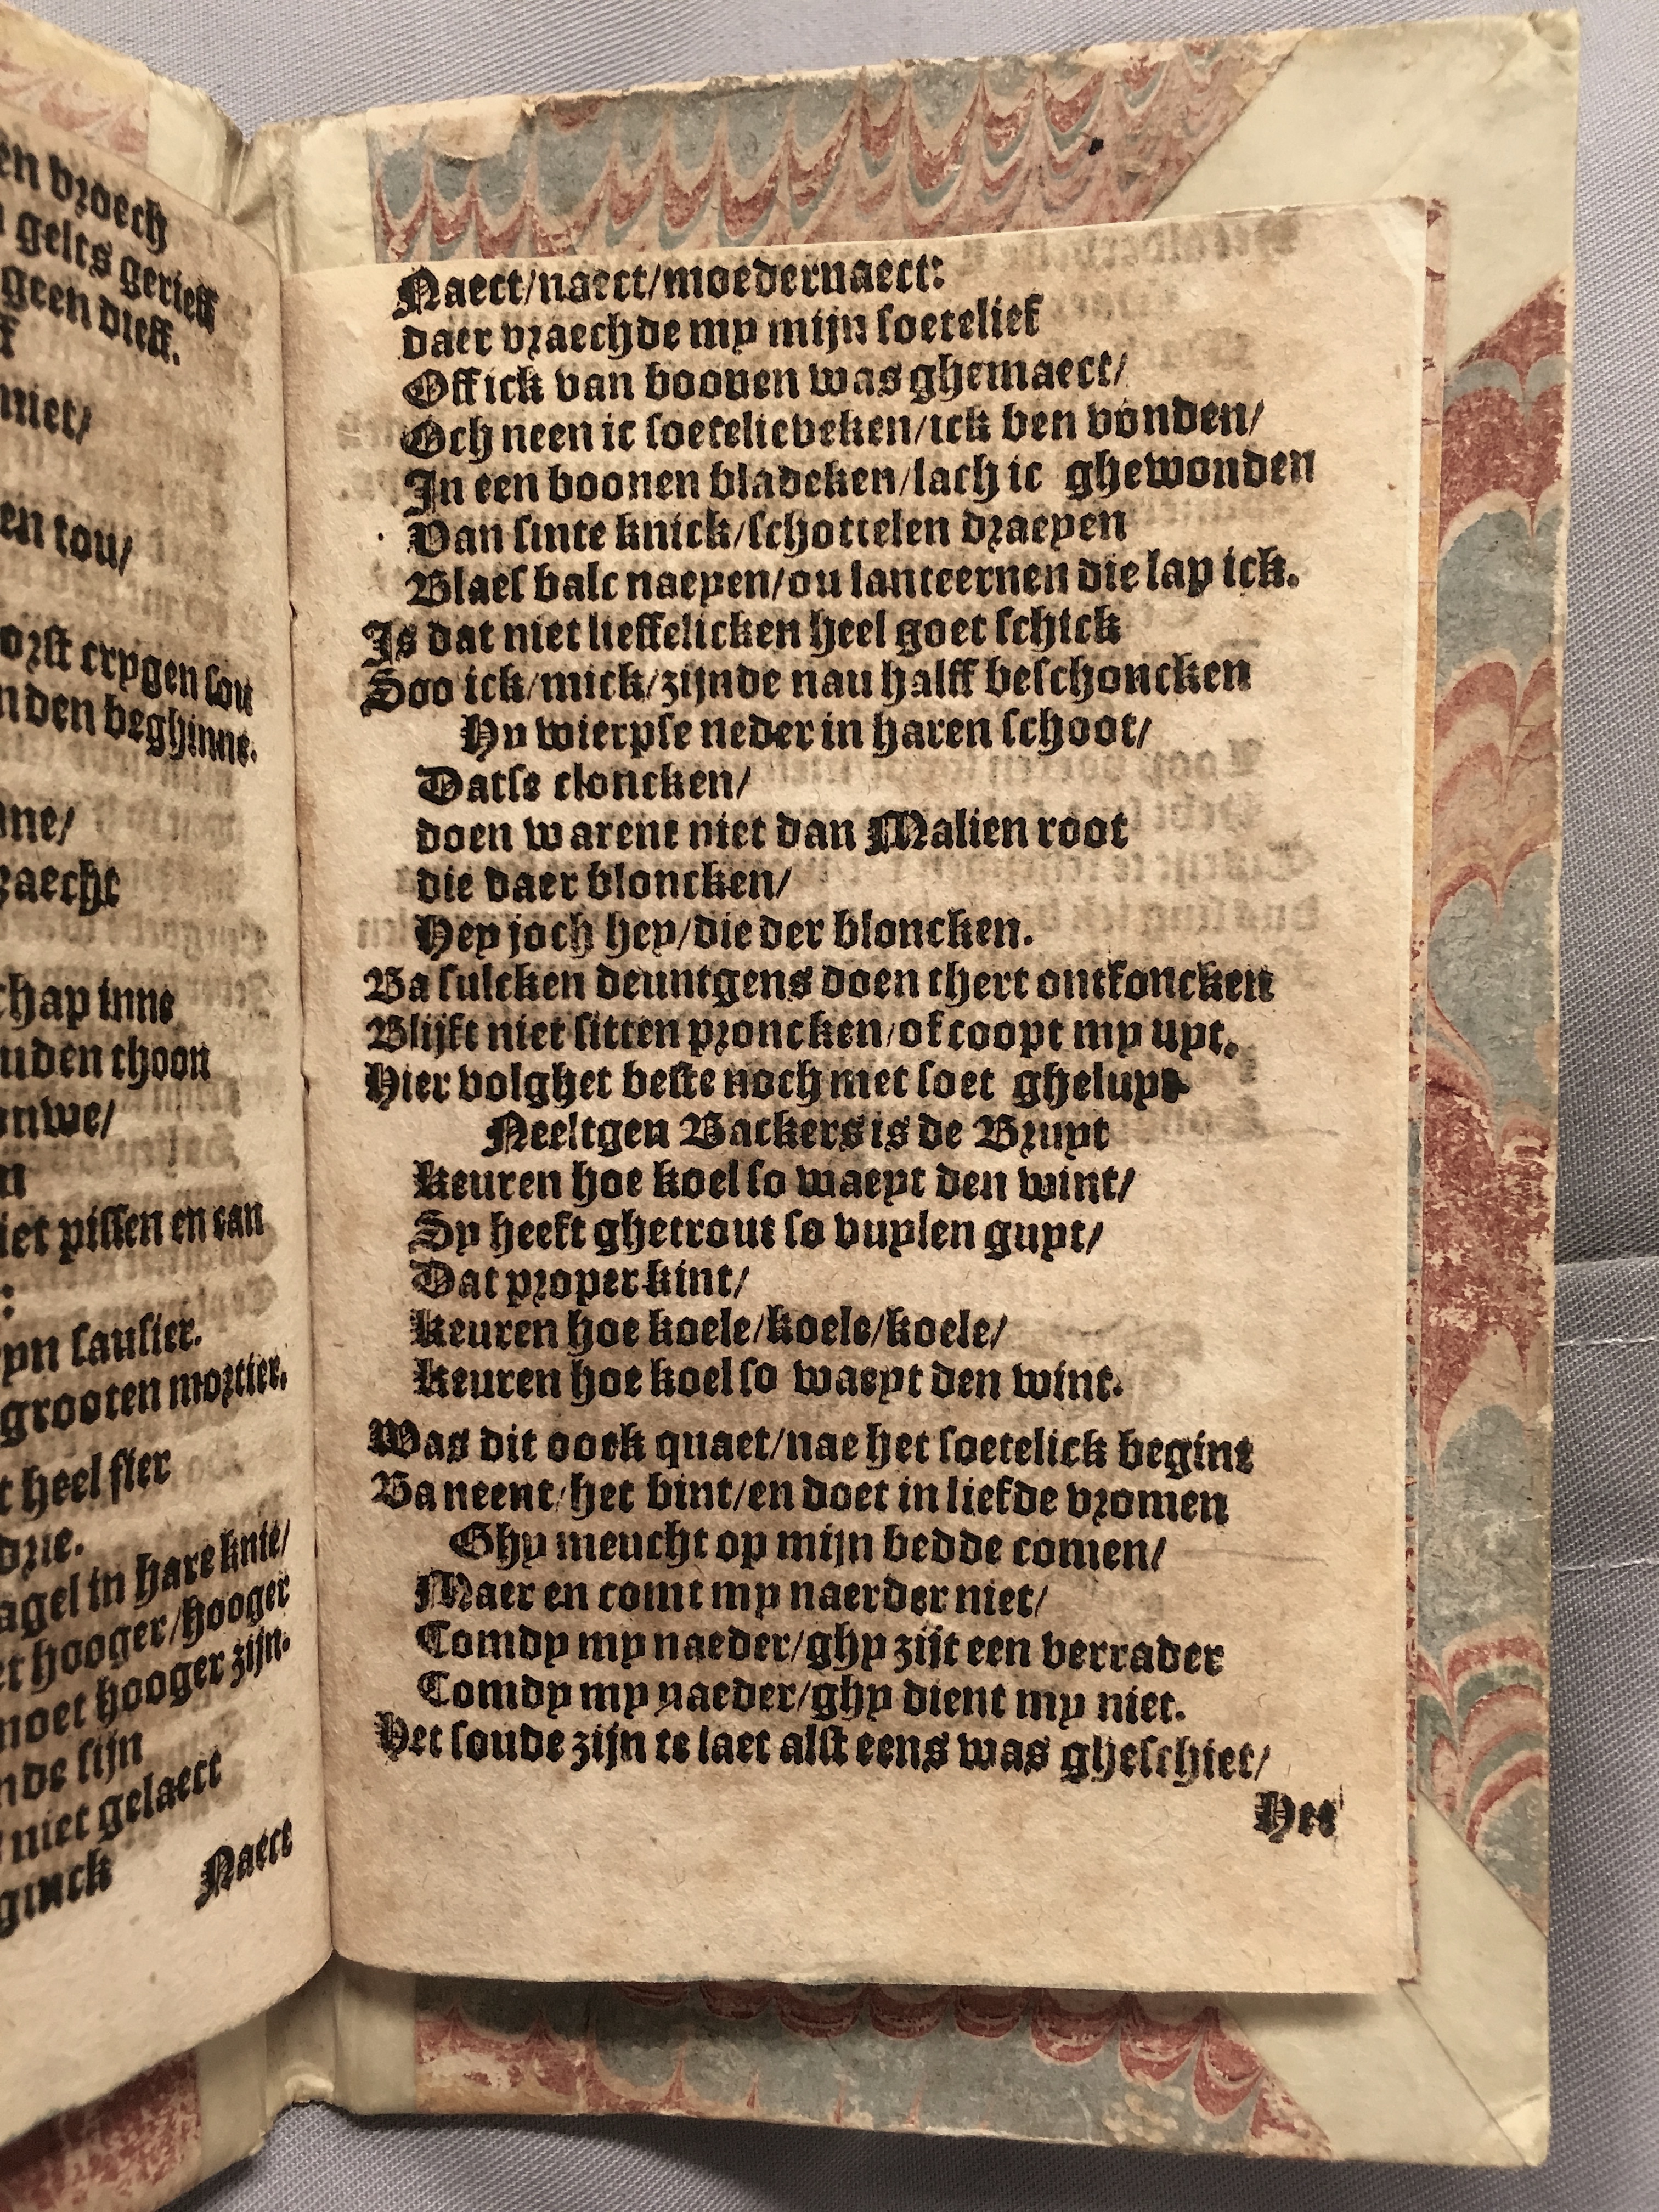 en vroech
gelts gerieff
geen dieff.
niet/
en tou/
orst crygen sou
nden beghinne.
ne/
chap inne
uden thoon
ouwe/
iet pissen en can
yn sausier.
grooten mortier,
t heel fier
drie.
agel in hare knie/
et hooger/hooger
moet hooger zijn.
nde sijn
niet gelaect
ginck
Naect
Naect/naect/moedernaect:
daer vraechde my mijn soetelief
Off ick van boonen was ghemaect/
Och neen ic soetelieveken/ick ben vonden/
In een boonen bladeken/lach ic ghewonden
Van sinte knick/schottelen draeyen
Blaes balc naeyen/ou lanteernen die lap ick.
Is dat niet lieffelicken heel goet schick
Soo ick/mick/zijnde nau halff beschoncken
Hy wierpse neder in haren schoot/
Datse cloncken/
doen warent niet dan Malien root
die daer bloncken/
Hey joch hey/die der bloncken.
Ba sulcken deuntgens doen thert ontfoncken
Blijft niet sitten proncken/of coopt my uyt.
Hier volghet beste noch met soet gheluyt
Neeltgen Backers is de Bruyt
keuren hoe koel so waeyt den wint/
Sy heeft ghetrout so vuylen guyt/
Dat proper kint/
keuren hoe koele/koele/koele/
keuren hoe koel so waeyt den wint.
Was dit oock quaet/nae het soetelick begint
Ba neent/het bint/en doet in liefde vromen
Ghy meucht op mijn bedde comen/
Maer en comt my naerder niet/
Comdy my naeder/ghy zijt een verrader
Comdy my naeder/ghy dient my niet.
Het soude zijn te laet alst eens was gheschiet/
Het